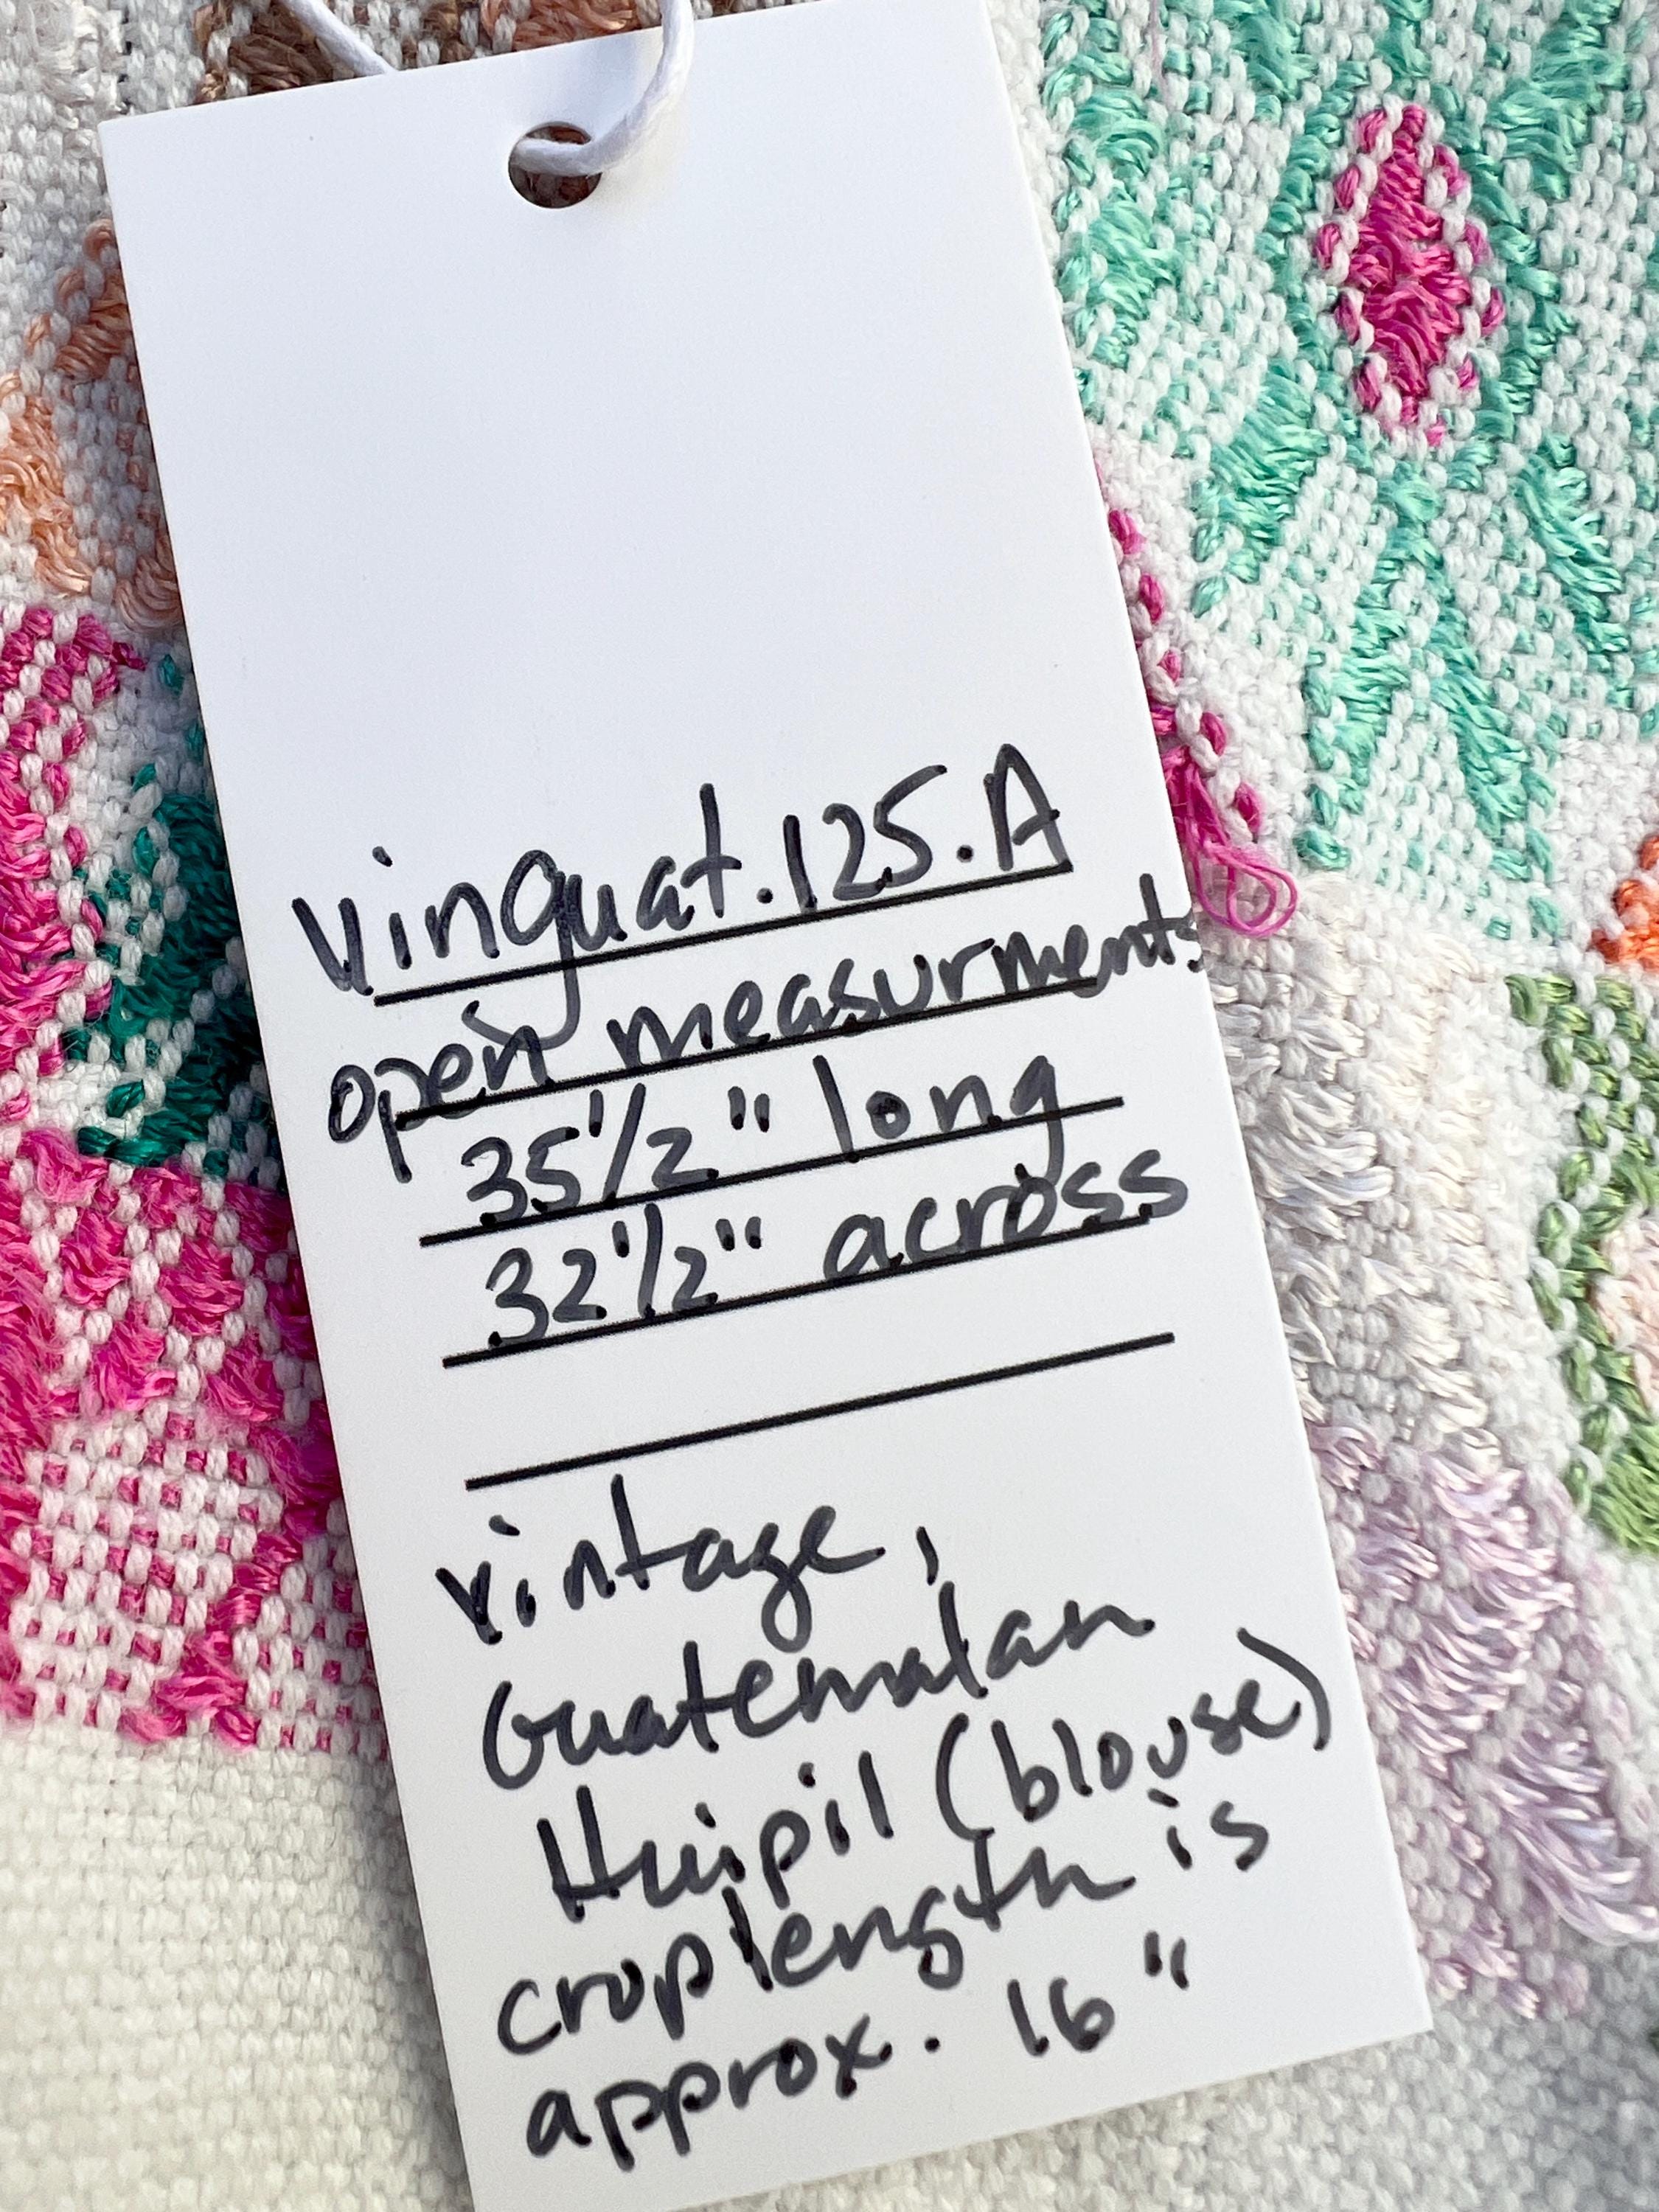 Vinguat.125.A
open measurments
35 1/2" long
32 1/2" across
vintage,
Guatemalan
Huipil (blouse)
crop length is
approx. 16"